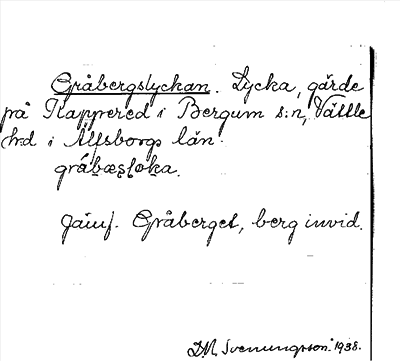 Gråbergslyckan. Lycka, gärde
på Rappered i Bergum s:n, Vättle
hd i Älfsborgs län.
Jämf. Gråberget, berg invid.
D.A. Svenungsson. 1938.